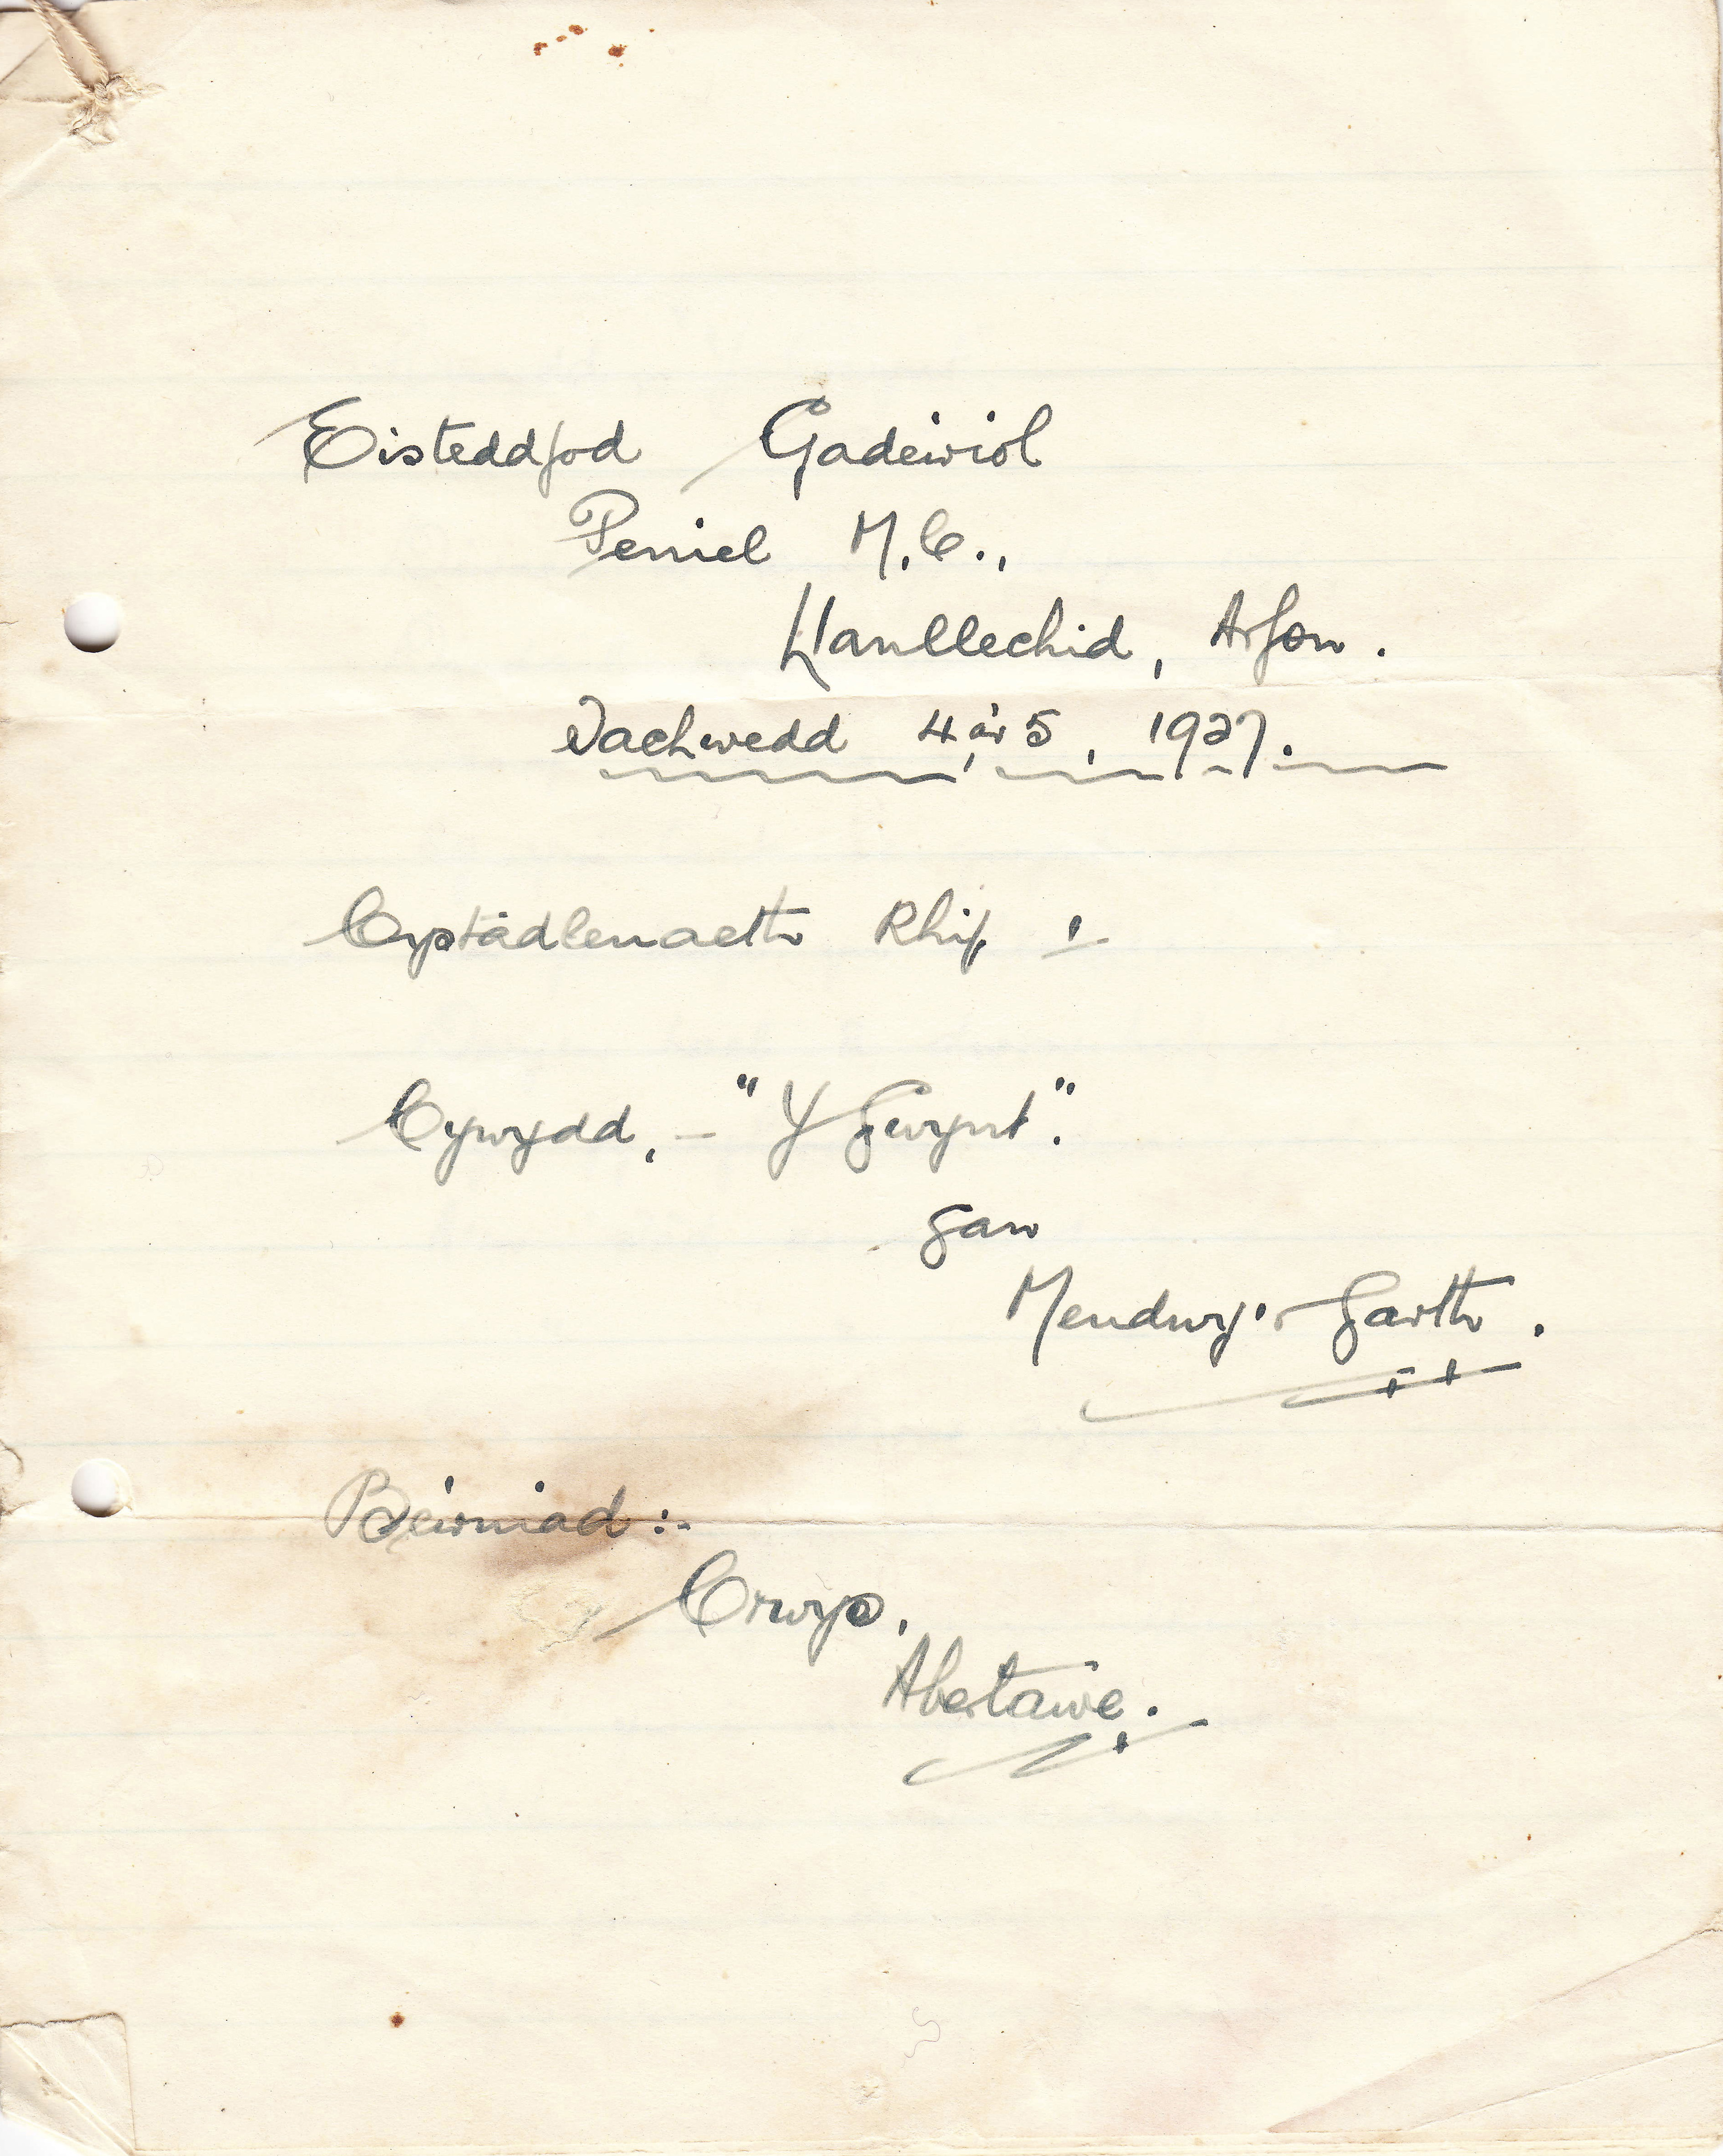 Eisteddfod Gadeiriol
Peniel M.C.,
Llanllechid, Arfon.
Tachwedd 4 a'r 5, 1927.
Cystadlenaeth Rhif 1
Cywydd, - "Y Gwynt".
gan
Mendwy'r Garth.
Beirniad :-
Crwys,
Abertawe.